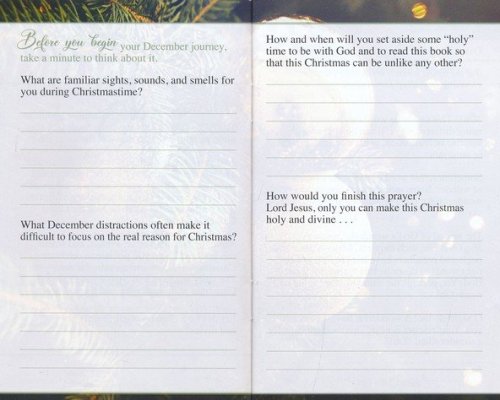 Before you begin your December journey,
take a minute to think about it.
What are familiar sights, sounds, and smells for
you during Christmastime?
What December distractions often make it
difficult to focus on the real reason for Christmas?
How and when will you set aside some “holy”
time to be with God and to read this book so
that this Christmas can be unlike any other?
How would you finish this prayer?
Lord Jesus, only you can make this Christmas
holy and divine . . .